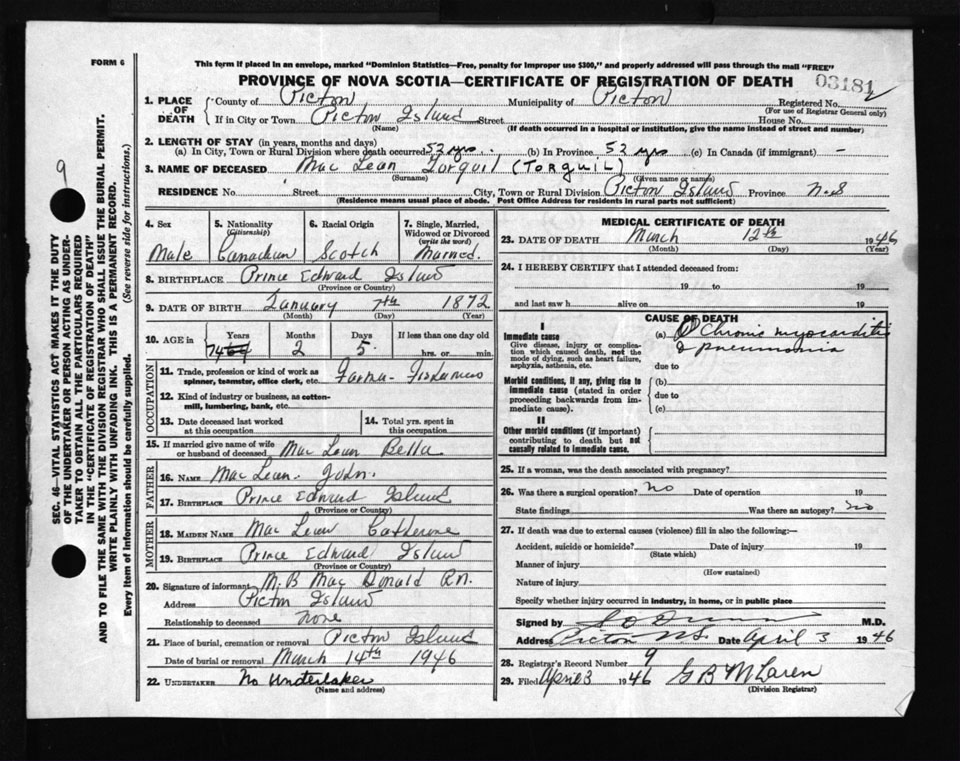 FORM 6
This form if placed in an envelope, marked "Dominion Statistics—Free, penalty for improper use $300," and properly addressed will pass through the mail "FREE"
PROVINCE OF NOVA SCOTIA—CERTIFICATE OF REGISTRATION OF DEATH
03181
1. PLACE OF DEATH
County of Picton Municipality of Picton Registered No.
(For use of Registrar General only)
If in City or Town Picton Island Street House No.
(Name) (If death occurred in a hospital or institution, give the name instead of street and number)
2. LENGTH OF STAY (in years, months and days)
(a) In City, Town or Rural Division where death occurred 53 yrs. (b) In Province 53 yrs (c) In Canada (if immigrant) —
3. NAME OF DECEASED Mac Lean Torquil (TORQUIL)
(Surname) (Given name or names)
RESIDENCE No. Street City, Town or Rural Division Picton Island Province N.S
(Residence means usual place of abode. Post Office Address for residents in rural parts not sufficient)
4. Sex
Male
5. Nationality (Citizenship)
Canadian
6. Racial Origin
Scotch
7. Single, Married, Widowed or Divorced (write the word)
Married.
8. BIRTHPLACE Prince Edward Island
(Province or Country)
9. DATE OF BIRTH January 7th 1872
(Month) (Day) (Year)
10. AGE in Years Months Days If less than one day old
74 2 5 hrs. or min.
OCCUPATION
11. Trade, profession or kind of work as spinner, teamster, office clerk, etc.
12. Kind of industry or business, as cotton-mill, lumbering, bank, etc.
13. Date deceased last worked at this occupation
14. Total yrs. spent in this occupation
15. If married give name of wife or husband of deceased Mac Lean Bella
FATHER
16. NAME Mac Lean. John.
17. BIRTHPLACE Prince Edward Island
(Province or Country)
MOTHER
18. MAIDEN NAME Mac Lean Catherine
19. BIRTHPLACE Prince Edward Island
(Province or Country)
20. Signature of informant M.B Mac Donald R.N.
Address Picton Island
Relationship to deceased None
21. Place of burial, cremation or removal Picton Island
Date of burial or removal March 14th 1946
22. UNDERTAKER No Undertaker
(Name and address)
MEDICAL CERTIFICATE OF DEATH
23. DATE OF DEATH March 12th 1946
(Month) (Day) (Year)
24. I HEREBY CERTIFY that I attended deceased from:
19 to 19
and last saw h alive on 19
CAUSE OF DEATH
I
Immediate cause
Give disease, injury or complication which caused death, not the mode of dying, such as heart failure, asphyxia, asthenia, etc.
(a) Chronic myocarditis
& pneumonia
due to
Morbid conditions, if any, giving rise to immediate cause (stated in order proceeding backwards from immediate cause).
(b)
due to
(c)
II
Other morbid conditions (if important) contributing to death but not causally related to immediate cause.
25. If a woman, was the death associated with pregnancy?
26. Was there a surgical operation? no Date of operation 19
State findings Was there an autopsy? no
27. If death was due to external causes (violence) fill in also the following:—
Accident, suicide or homicide? Date of injury 19
(State which)
Manner of injury
(How sustained)
Nature of injury
Specify whether injury occurred in industry, in home, or in public place
Signed by M.D.
Address Picton N.S. Date April 3 1946
28. Registrar's Record Number 9
29. Filed April 3 1946 G B McLaren
(Division Registrar)
9
SEC. 46—VITAL STATISTICS ACT MAKES IT THE DUTY OF THE UNDERTAKER OR PERSON ACTING AS UNDERTAKER TO OBTAIN ALL THE PARTICULARS REQUIRED IN THE "CERTIFICATE OF REGISTRATION OF DEATH"
AND TO FILE THE SAME WITH THE DIVISION REGISTRAR WHO SHALL ISSUE THE BURIAL PERMIT.
WRITE PLAINLY WITH UNFADING INK. THIS IS A PERMANENT RECORD.
Every item of information should be carefully supplied. (See reverse side for instructions.)